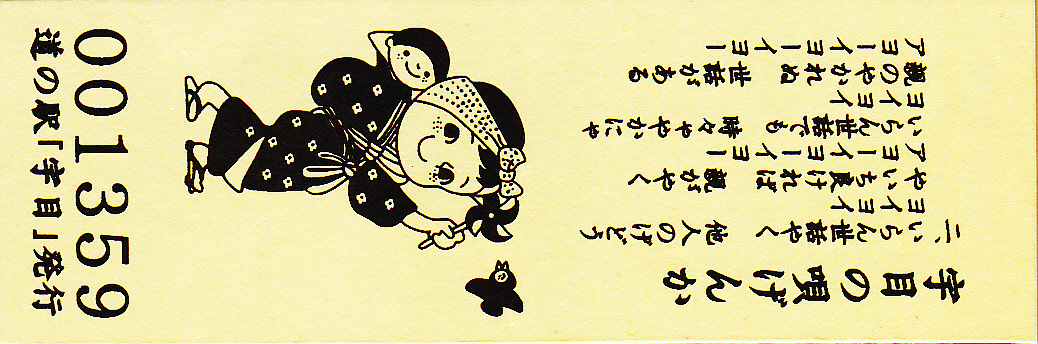 宇目の唄げんか
二、いらん世話やく　他人のげどう
ヨイヨイ
やいち良ければ　親がやく
アヨーイヨーイヨー
いらん世話でも　時々ややかにゃ
ヨイヨイ
親のやかれぬ　世話がある
アヨーイヨーイヨー
001359
道の駅「宇目」発行